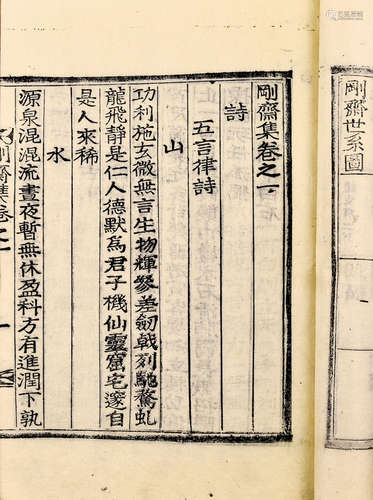 剛齋世系圖
一
剛齋集卷之一
詩
五言律詩
山
功利施玄微無言生物輝參差劒戟列馳騖虬
龍飛靜是仁人德默為君子機仙靈窟宅邃自
是人來稀
水
源泉混混流晝夜暫無休盈科方有進潤下孰
剛齋集卷之一
一